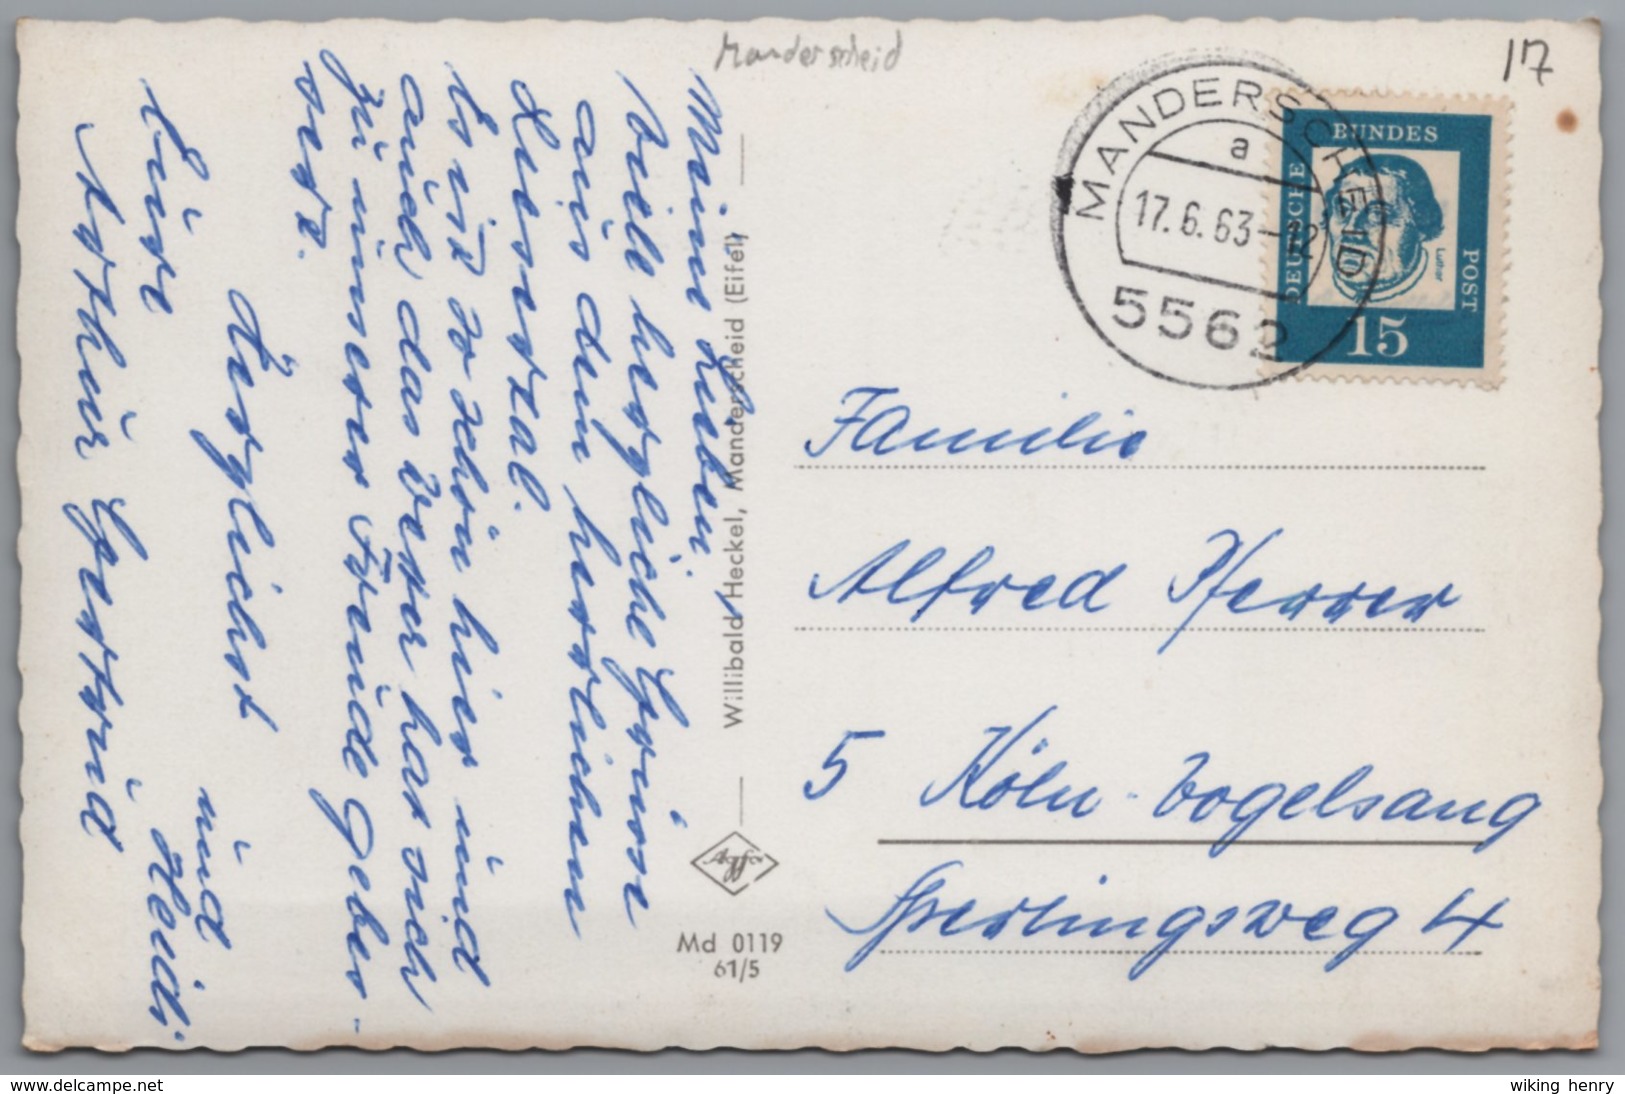 Manderscheid
17
Meine Lieben,
Viele herzliche Grüsse
aus dem herrlichen
Liesertal.
Es ist so schön hier und
auch das Wetter hat sich
zu unserer Freude gebes-
sert.
Herzlichst
Eure und Heidi
Arthur Gertrud
Willibald Heckel, Manderscheid (Eifel)
Agfa
Md 0119
61/5
MANDERSCHEID
a
17.6.63-12
5562
DEUTSCHE BUNDES POST
Luther
15
Familie
Alfred Pferrer
5 Köln-Vogelsang
Sperlingsweg 4
www.delcampe.net
wiking henry